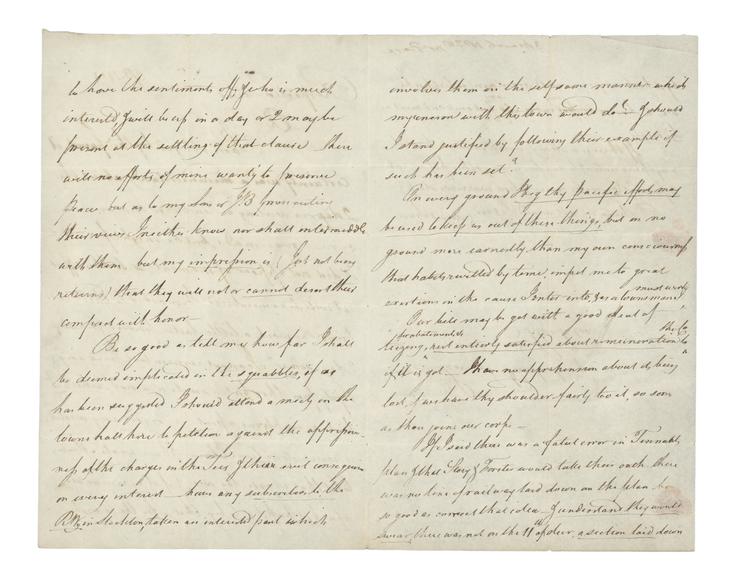 to have the sentiments off, who is much
interested I will be up in a day or 2 may be
present at the settling of that clause there
will no efforts of mine wanting to preserve
Peace but as to my Son or
their views I neither know nor shall intermeddle
with them but my impression is (Jos not being
returned) that they will not or cannot desert their
compact with honor —
Be so good as tell me how far I shall
be deemed implicated in the squabbles, if as
has been suggested I should attend a meeting in the
town hall here to petition against the oppressive-
ness of the charges in the Tees & their evil consequences
on every interest — have any subscribers to the
R Wy in Stockton, taken an interested part which
involves them in the self same manner which
my union with this town would do? I should
I stand justified by following their example if
such has been set?
On every ground I beg thy pacific efforts may
be used to keep us out of these things, but on no
ground more earnestly than my own consciousness
that habits rivetted by time, impel me to great
exertions in the cause I enter into, & as a townsman I must work
Our bill may be got with a good deal of
teizing, not entirely satisfied about remuneration to the Co
if it is got — I have no apprehension about its being
lost, if we have thy shoulder fairly to it, so soon
as thou joins our corps —
If I said there was a fatal error in
plan & that Story & Forster would take their oath there
was no line of railway laid down on the plan be
so good as correct that idea — I understand they would
swear, there was not on the 11th of decr. a section laid down